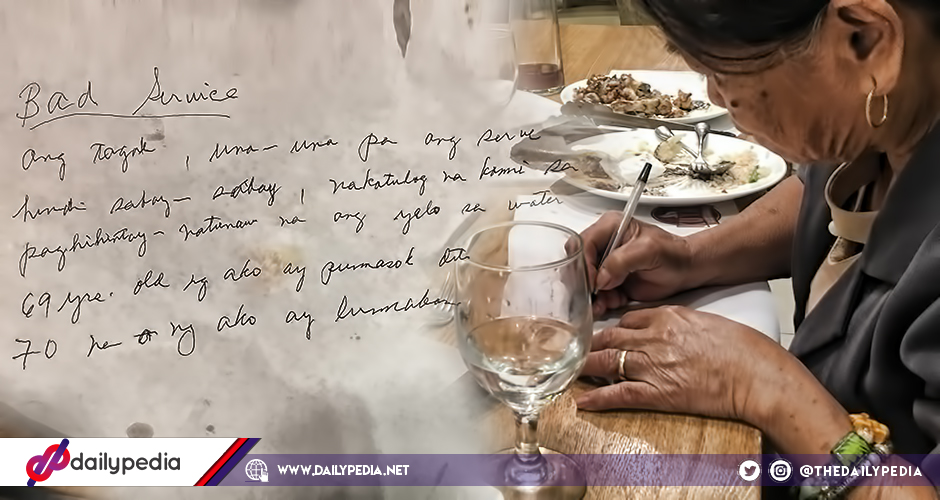 Bad Service
Ang tagal, una-una pa ang serve
hindi sabay-sabay, nakatulog na kami sa
paghihintay - natunaw na ang yelo sa water
69 yrs. old ng ako ay pumasok dito
70 na ng ako ay lumabas
dailypedia
WWW.DAILYPEDIA.NET
@THEDAILYPEDIA